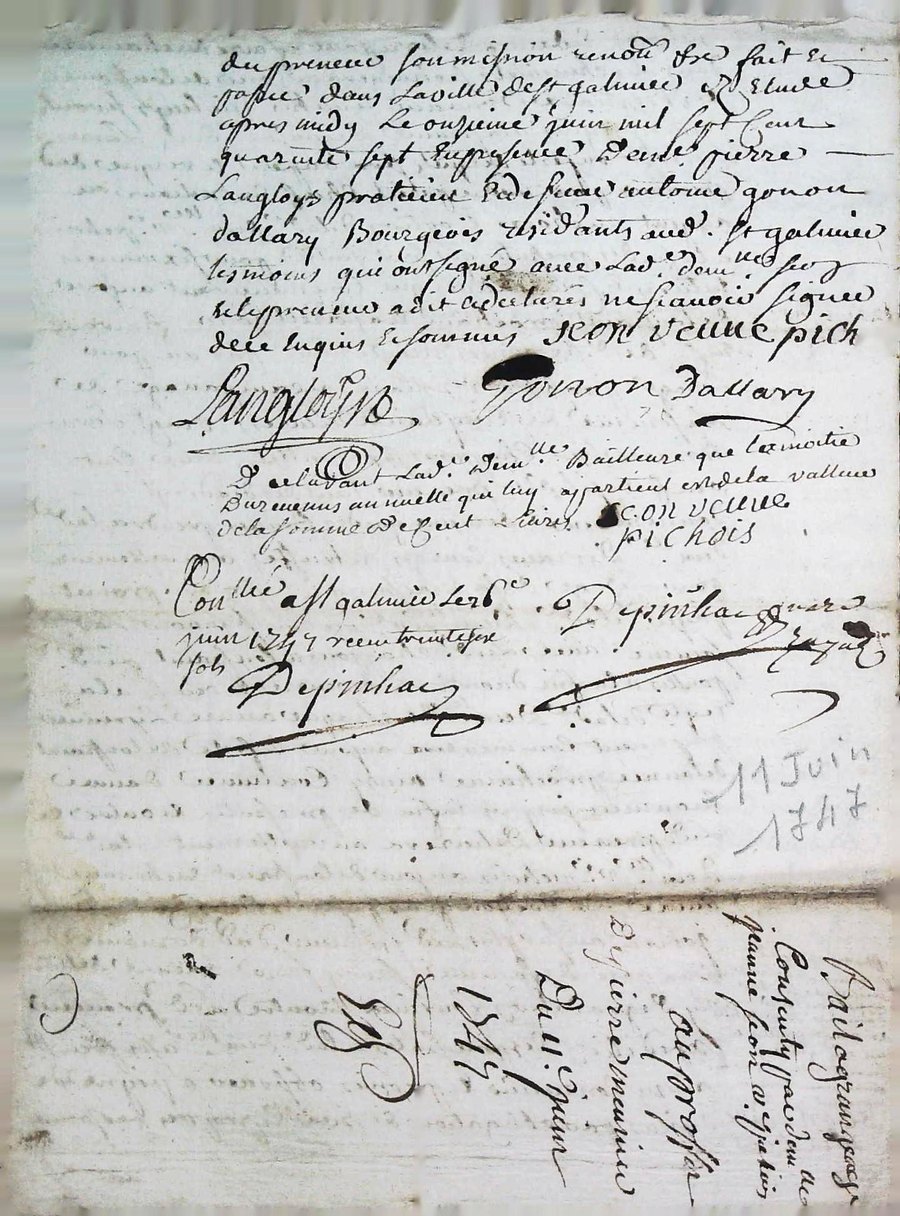 du preneur soumission renon &re fait Et
passé dans la ville de st galmier Etude
apres midy Le onzieme juin mil sept Cent
quarante sept En presence de me pierre
Langloys praticien Et de sieur antoine gonon
dallary Bourgeois residants aud. st galmier
tesmoins qui ont signé avec lad.e dem.lle seon
et le preneur a dit et declarés ne sçavoir signer
de ce Enquis Et sommés seon veuue pich
Langloys gonon Dallary
Declarant Lad.e Dem.lle Bailleuse que la moitie
Du revenus annuelle qui luy appartient est de la valleur
de la somme de Cent livres seon veuue
pichois
Con.llé a st galmier Le 26e
juin 1747 receu trente six
sols
Depinhac
Depinhac
11 Juin
1747
Bail a grangeage
Consenty par dem.lle
jeanne seon v. pichois
au proffit
De pierre
Du 11.e juin
1747